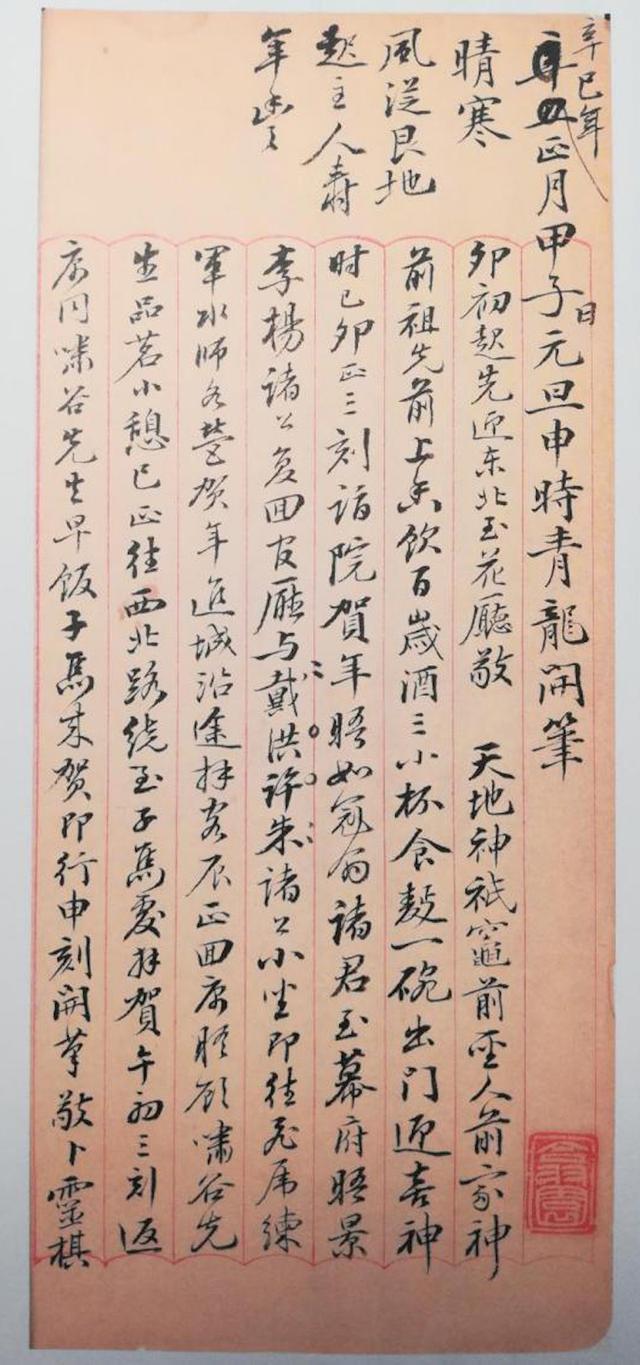 辛巳年
正月甲子日元旦申時青龍開筆
晴寒
風從艮地
起主人壽
年豐
卯初起先迎东北至花廳敬 天地神祇竈前聖人前家神
前祖先前上香飲百歲酒三小杯食麪一碗出門迎喜神
时已卯正三刻詣院賀年晤如冠翁諸君至幕府晤景
李楊諸公复回官廳与戴洪許朱諸公小坐即往虎席練
軍水师各營賀年進城沿途拜客辰正回寓晤顧嘯谷先
生品茗小憩巳正往西北路绕至子馬處拜賀午初三刻返
寓同嘯谷先生早飯子馬来賀即行申刻開筆敬卜靈棋